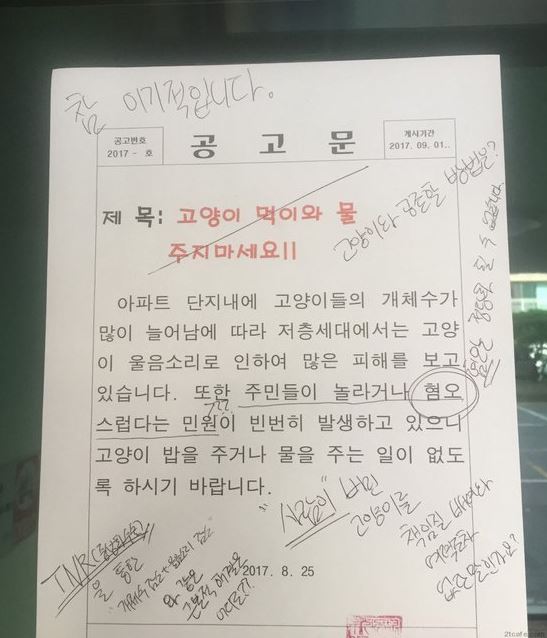 참 이기적입니다.
공고번호
2017 - 호
공고문
게시기간
2017. 09. 01..
제 목: 고양이 먹이와 물
주지마세요!!
고양이와 공존할 방법은?
아파트 단지내에 고양이들의 개체수가
많이 늘어남에 따라 저층세대에서는 고양
이 울음소리로 인하여 많은 피해를 보고
있습니다. 또한 주민들이 놀라거나 혐오
스럽다는 민원이 빈번히 발생하고 있으니
??
고양이 밥을 주거나 물을 주는 일이 없도
록 하시기 바랍니다.
"사람이" 버린
고양이를
책임질 배려와
없단 말인가요?
TNR(중성화수술)
을 통한
개체수 감소+울음소리 감소
와 같은
근본적 해결은
어디로??
2017. 8. 25
21cafe